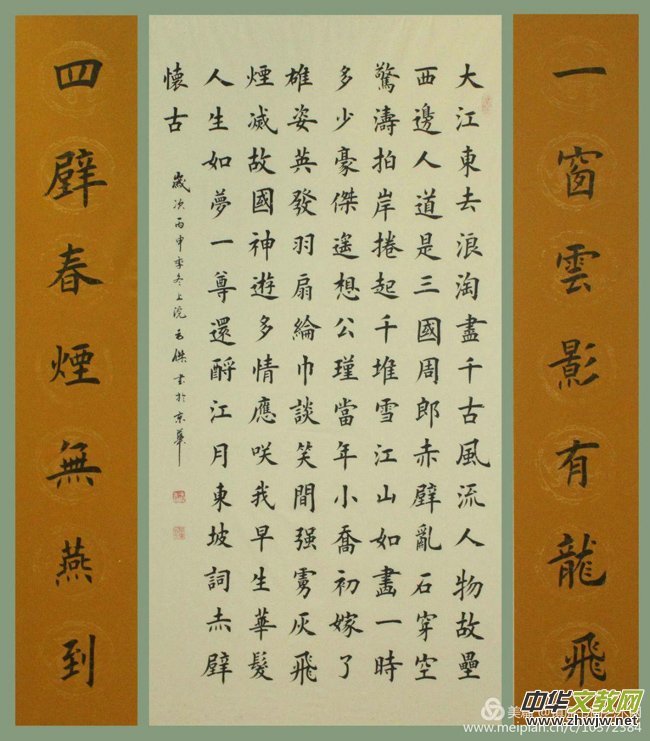 一窗雲影有龍飛
大江東去浪淘盡千古風流人物故壘
西邊人道是三國周郎赤壁亂石穿空
驚濤拍岸捲起千堆雪江山如畫一時
多少豪傑遙想公瑾當年小喬初嫁了
雄姿英發羽扇綸巾談笑間强虜灰飛
煙滅故國神遊多情應咲我早生華髮
人生如夢一尊還酹江月東坡詞赤壁
懷古
歲次丙申季冬上浣傑書於京華
四壁春煙無燕到
中华文教网
www.zhwjw.net
美篇
www.meipian.cn/c/10572384